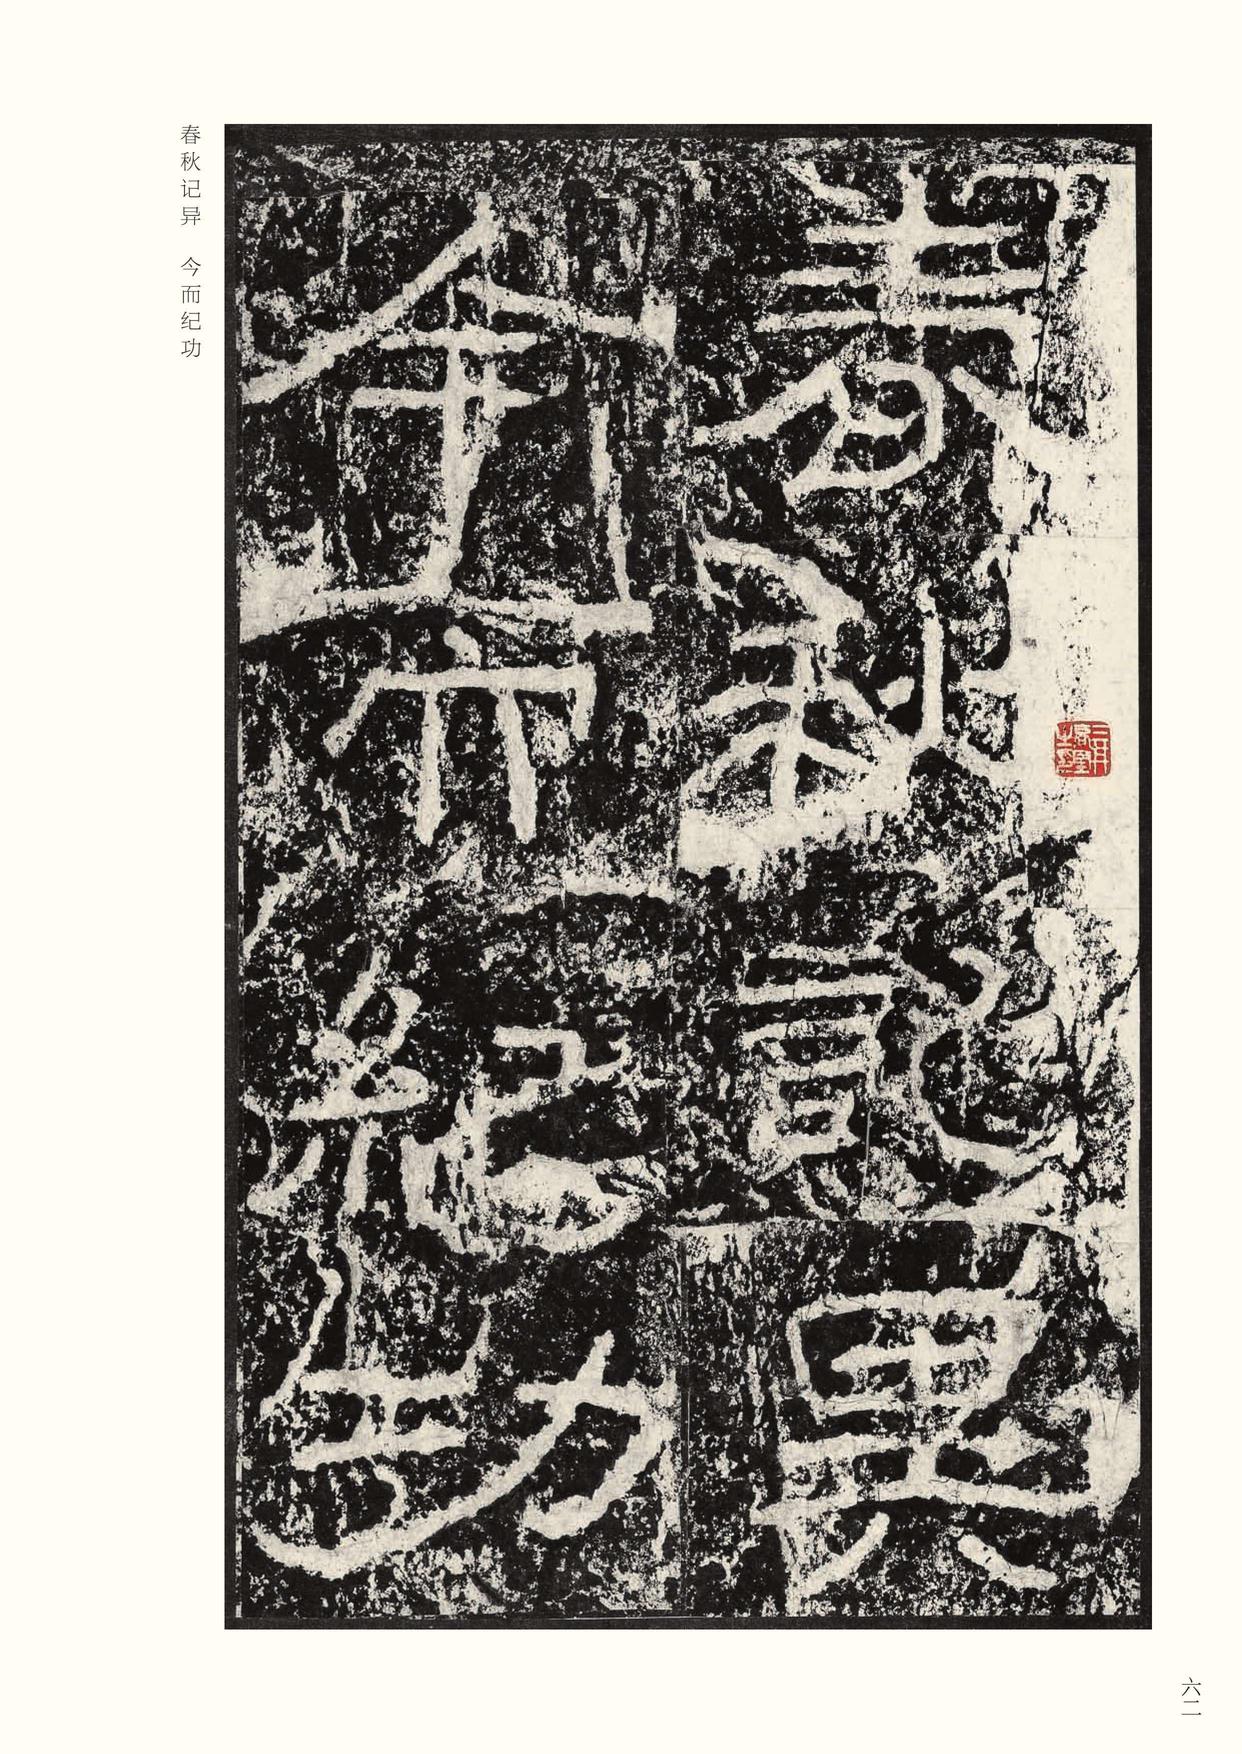 春秋記異
今而紀功
春秋记异 今而纪功
六二